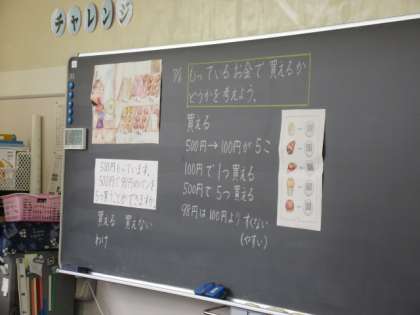 チャレンジ
もっているお金で買えるか
どうかを考えよう。
買える
500円→100円が5こ
100円で1つ買える
500円で5つ買える
98円は100円よりすくない
(やすい)
500円もっています。
500円で98円のパンを
5つ買うことができますか。
買える 買えない
わけ